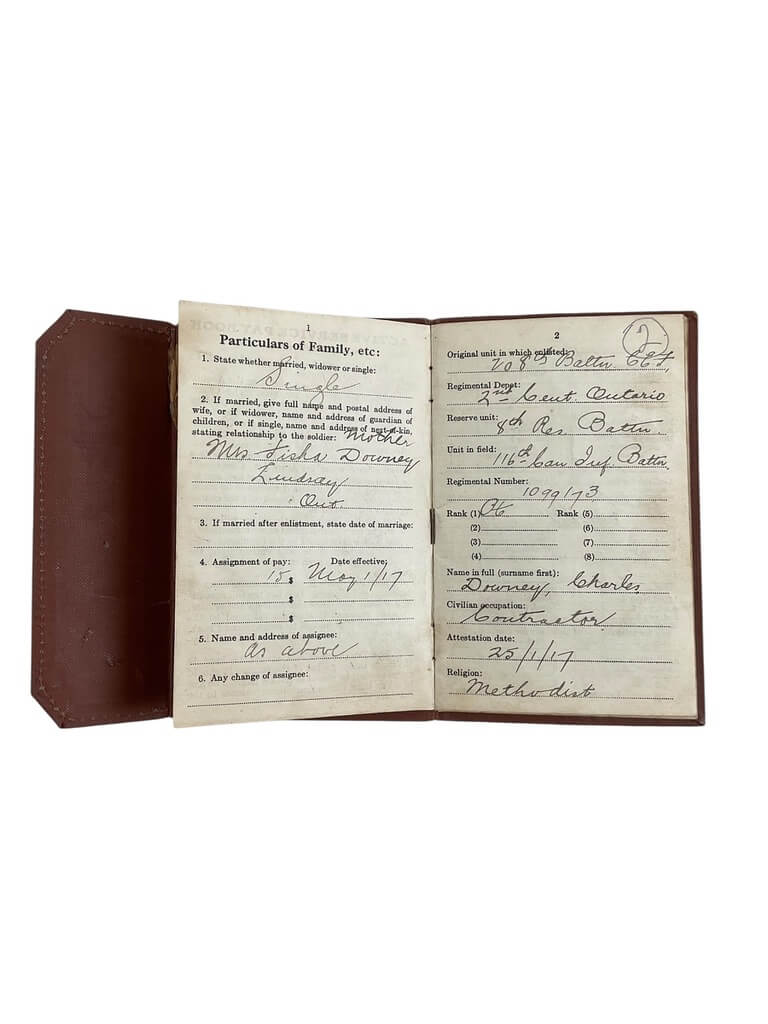 1
Particulars of Family, etc:
1. State whether married, widower or single:
Single
2. If married, give full name and postal address of
wife, or if widower, name and address of guardian of
children, or if single, name and address of next-of-kin,
stating relationship to the soldier: Mother
Mrs Downey
Lindsay
Ont.
3. If married after enlistment, state date of marriage:
4. Assignment of pay: Date effective:
15 $ May 1/17
$
$
5. Name and address of assignee:
As above
6. Any change of assignee:
2
Original unit in which enlisted:
208 Battn
Regimental Depot:
2nd Cent. Ontario
Reserve unit:
8th Res. Battn.
Unit in field:
116th Can Inf. Battn.
Regimental Number:
1099173
Rank (1) Pte Rank (5)
(2) (6)
(3) (7)
(4) (8)
Name in full (surname first):
Downey, Charles
Civilian occupation:
Contractor
Attestation date:
25/1/17
Religion:
Methodist